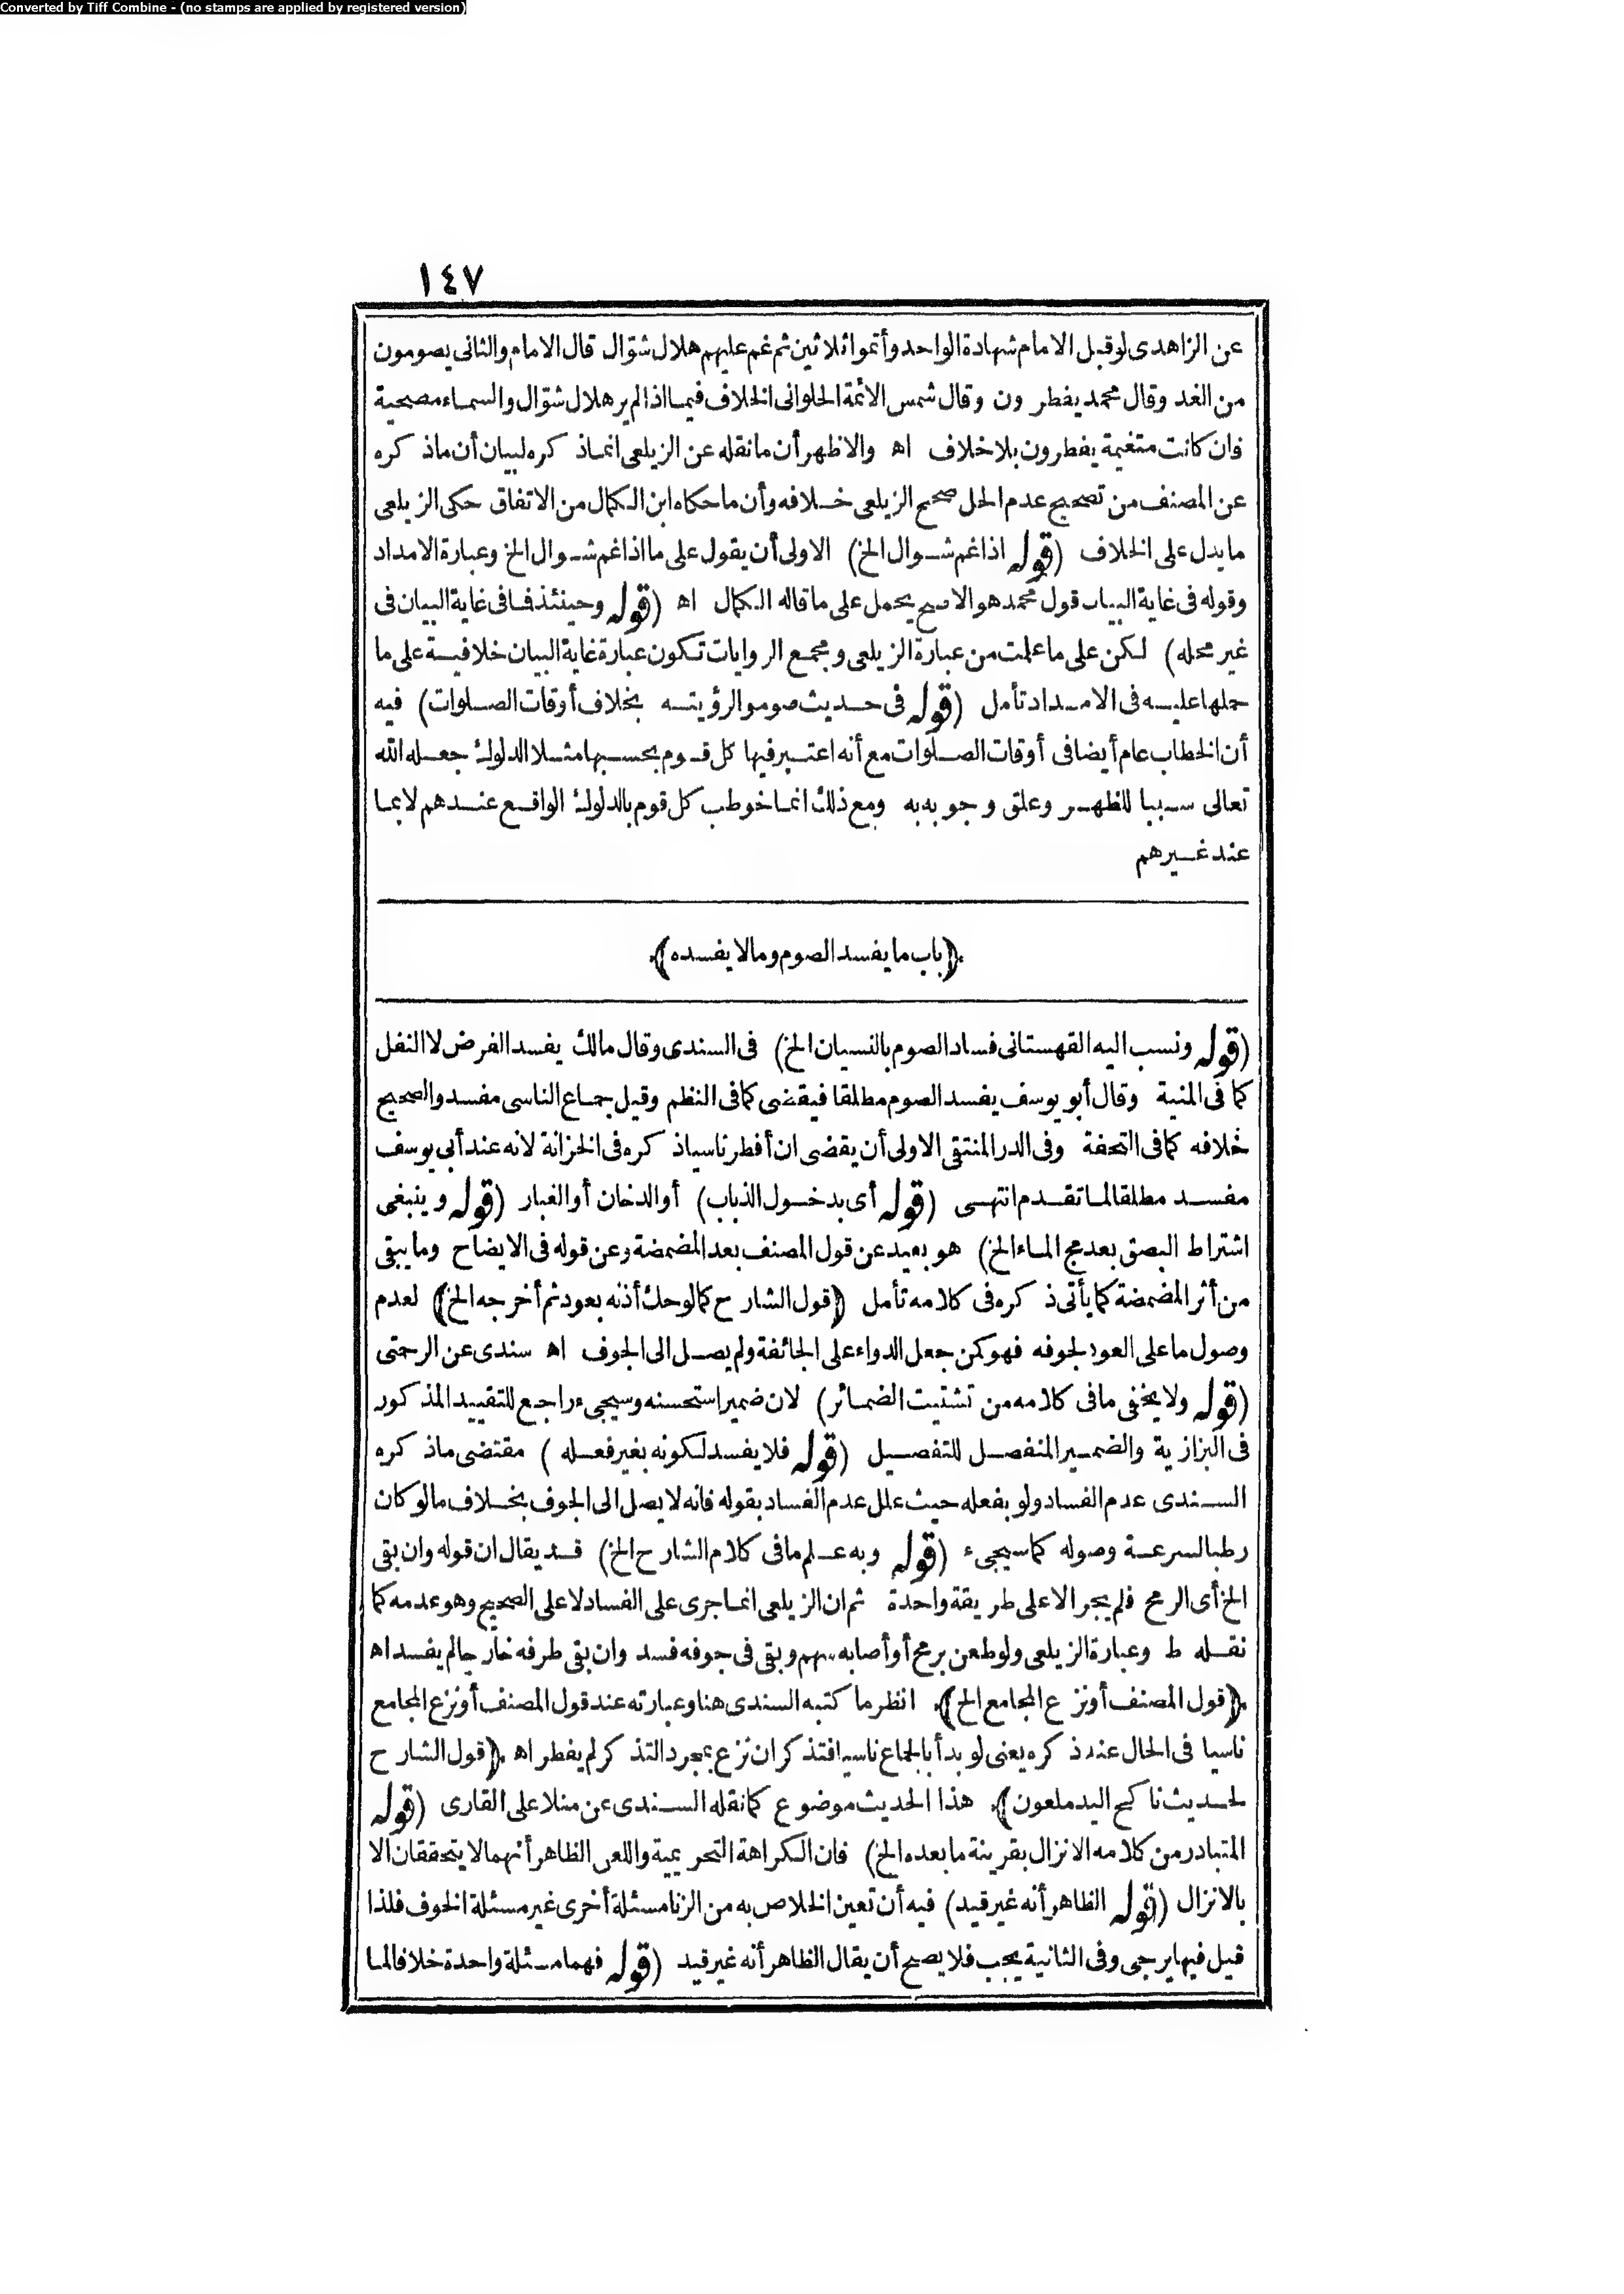 Converted by Tiff Combine - (no stamps are applied by registered version)
١٤٧
عن الزاهدى لو قبل الامام شهادة الواحد وأتموا ثلاثين ثم غم عليهم هلال شوّال قال الامام والثانى يصومون
من الغد وقال محمد يفطرون وقال شمس الائمة الحلوانى الخلاف فيما اذا لم ير هلال شوّال والسماء مصحية
فان كانت متغيمة يفطرون بلا خلاف اه والاظهر أن ما نقله عن الزيلعى انما ذكره لبيان أن ما ذكره
عن المصنف من تصحيح عدم الحل صحح الزيلعى خلافه وأن ما حكاه ابن الكمال من الاتفاق حكى الزيلعى
ما يدل على الخلاف (قوله اذا غم شوال الخ) الاولى أن يقول على ما اذا غم شوال الخ وعبارة الامداد
وقوله فى غاية البيان قول محمد هو الاصح يحمل على ما قاله الكمال اه (قوله وحينئذ فما فى غاية البيان فى
غير محله) لكن على ما علمت من عبارة الزيلعى ومجمع الروايات تكون عبارة غاية البيان خلافية على ما
حملها عليه فى الامداد تأمل (قوله فى حديث صوموا لرؤيته بخلاف أوقات الصلوات) فيه
أن الخطاب عام أيضا فى أوقات الصلوات مع أنه اعتبر فيها كل قوم بحسبها مثلا الدلوك جعله الله
تعالى سببا للظهر وعلق وجوبه به ومع ذلك انما خوطب كل قوم بالدلوك الواقع عندهم لا بما
عند غيرهم
﴿باب ما يفسد الصوم وما لا يفسده﴾
(قوله ونسب اليه القهستانى فساد الصوم بالنسيان الخ) فى السندى وقال مالك يفسد الفرض لا النفل
كما فى المنية وقال أبو يوسف يفسد الصوم مطلقا فيقضى كما فى النظم وقيل جماع الناسى مفسد والصحيح
خلافه كما فى التحفة وفى الدر المنتقى الاولى أن يقضى ان أفطر ناسيا ذكره فى الخزانة لانه عند أبى يوسف
مفسد مطلقا لما تقدم انتهى (قوله أى بدخول الذباب) أو الدخان أو الغبار (قوله وينبغى
اشتراط البصق بعد مج الماء الخ) هو بعيد عن قول المصنف بعد المضمضة وعن قوله فى الايضاح وما يبقى
من أثر المضمضة كما يأتى ذكره فى كلامه تأمل ﴿قول الشارح كما لو حك أذنه بعود ثم أخرجه الخ﴾ لعدم
وصول ما على العود لجوفه فهو كمن جعل الدواء على الجائفة ولم يصل الى الجوف اه سندى عن الرحمتى
(قوله ولا يخفى ما فى كلامه من تشتيت الضمائر) لان ضمير استحسنه وسيجىء راجع للتقييد المذكور
فى البزازية والضمير المنفصل للتفصيل (قوله فلا يفسد لكونه بغير فعله) مقتضى ما ذكره
السندى عدم الفساد ولو بفعله حيث علل عدم الفساد بقوله فانه لا يصل الى الجوف بخلاف ما لو كان
رطبا لسرعة وصوله كما سيجىء (قوله وبه علم ما فى كلام الشارح الخ) قد يقال ان قوله وان بقى
الخ أى الرمح فلم يجر الا على طريقة واحدة ثم ان الزيلعى انما جرى على الفساد لا على الصحيح وهو عدمه كما
نقله ط وعبارة الزيلعى ولو طعن برمح أو أصابه سهم وبقى فى جوفه فسد وان بقى طرفه خارجا لم يفسد اه
﴿قول المصنف أو نزع المجامع الخ﴾ انظر ما كتبه السندى هنا وعبارته عند قول المصنف أو نزع المجامع
ناسيا فى الحال عند ذكره يعنى لو بدأ بالجماع ناسيا فتذكر ان نزع بمجرد التذكر لم يفطر اه ﴿قول الشارح
لحديث ناكح اليد ملعون﴾ هذا الحديث موضوع كما نقله السندى عن منلا على القارى (قوله
المتبادر من كلامه الانزال بقرينة ما بعده الخ) فان الكراهة التحريمية واللعن الظاهر أنهما لا يتحققان الا
بالانزال (قوله الظاهر أنه غير قيد) فيه أن تعين الخلاص به من الزنا مسئلة أخرى غير مسئلة الخوف فلذا
قيل فيها يرجى وفى الثانية يجب فلا يصح أن يقال الظاهر أنه غير قيد (قوله فهما مسئلة واحدة خلافا لما